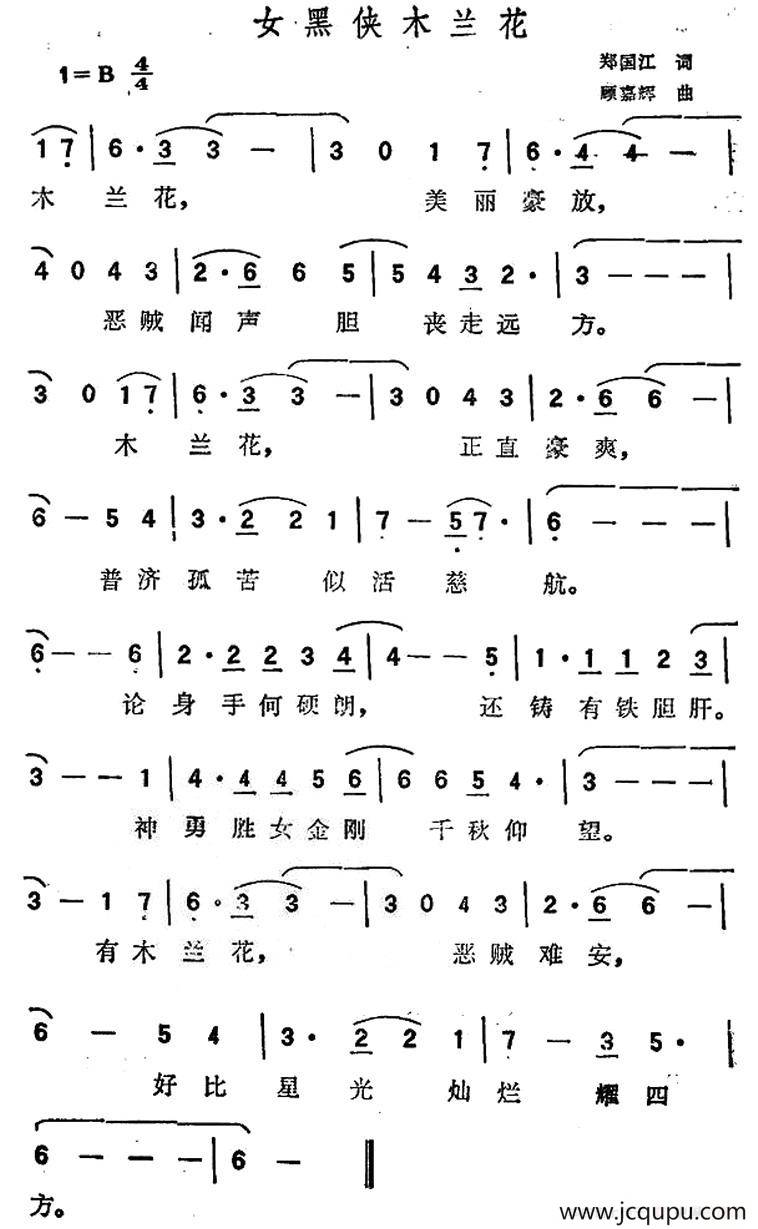 女黑侠木兰花
1=B 4/4
郑国江 词
顾嘉辉 曲
1 7 | 6 · 3 3 — | 3 0 1 7 | 6 · 4 4 — |
木 兰 花, 美 丽 豪 放,
4 0 4 3 | 2 · 6 6 5 | 5 4 3 2 · | 3 — — — |
恶 贼 闻 声 胆 丧 走 远 方。
3 0 1 7 | 6 · 3 3 — | 3 0 4 3 | 2 · 6 6 — |
木 兰 花, 正 直 豪 爽,
6 — 5 4 | 3 · 2 2 1 | 7 — 5 7 · | 6 — — — |
普 济 孤 苦 似 活 慈 航。
6 — — 6 | 2 · 2 2 3 4 | 4 — — 5 | 1 · 1 1 2 3 |
论 身 手 何 硕 朗, 还 铸 有 铁 胆 肝。
3 — — 1 | 4 · 4 4 5 6 | 6 6 5 4 · | 3 — — — |
神 勇 胜 女 金 刚 千 秋 仰 望。
3 — 1 7 | 6 · 3 3 — | 3 0 4 3 | 2 · 6 6 — |
有 木 兰 花, 恶 贼 难 安,
6 — 5 4 | 3 · 2 2 1 | 7 — 3 5 · |
好 比 星 光 灿 烂 耀 四
6 — — — | 6 — ‖
方。
www.jcqupu.com